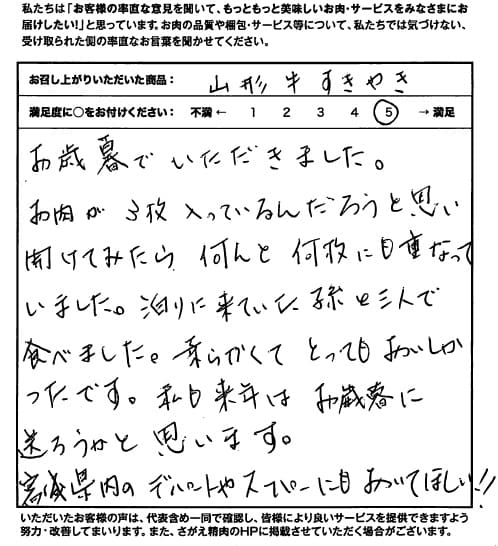 私たちは「お客様の率直な意見を聞いて、もっともっと美味しいお肉・サービスをみなさまにお
届けしたい!」と思っています。お肉の品質や梱包・サービス等について、私たちでは気づけない、
受け取られた側の率直なお言葉を聞かせてください。
お召し上がりいただいた商品： 山形牛すきやき
満足度に○をお付けください： 不満 ← 1 2 3 4 5 → 満足
お歳暮でいただきました。
お肉が3枚入っているんだろうと思い
開けてみたら何んと何枚にも重なって
いました。泊りに来ていた孫と三人で
食べました。柔らかくてとってもおいしか
ったです。私も来年はお歳暮に
送ろうかと思います。
宮城県内のデパートやスーパーにもおいてほしい!!
いただいたお客様の声は、代表含め一同で確認し、皆様により良いサービスを提供できますよう
努力・改善してまいります。また、さがえ精肉のHPに掲載させていただく場合がございます。